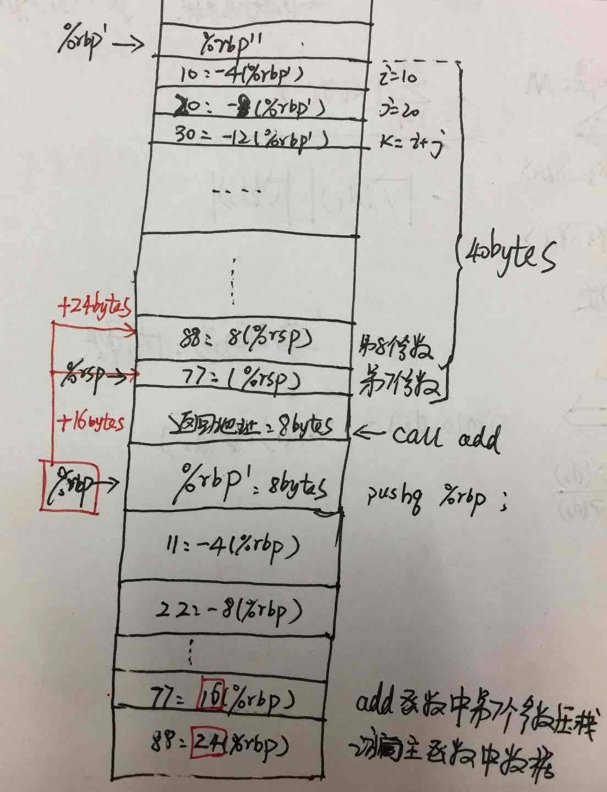 %rbp' → %rbp''
10 = -4(%rbp') i=10
20 = -8(%rbp') j=20
30 = -12(%rbp') k=i+j
40bytes
+24bytes
88 = 8(%rsp) 第8个参数
%rsp → 77 = (%rsp) 第7个参数
+16bytes 返回地址 = 8bytes ← call add
%rbp → %rbp' = 8bytes pushq %rbp ;
11 = -4(%rbp)
22 = -8(%rbp)
77 = 16(%rbp) add函数中第7个参数压栈
88 = 24(%rbp) 访问主函数中数据